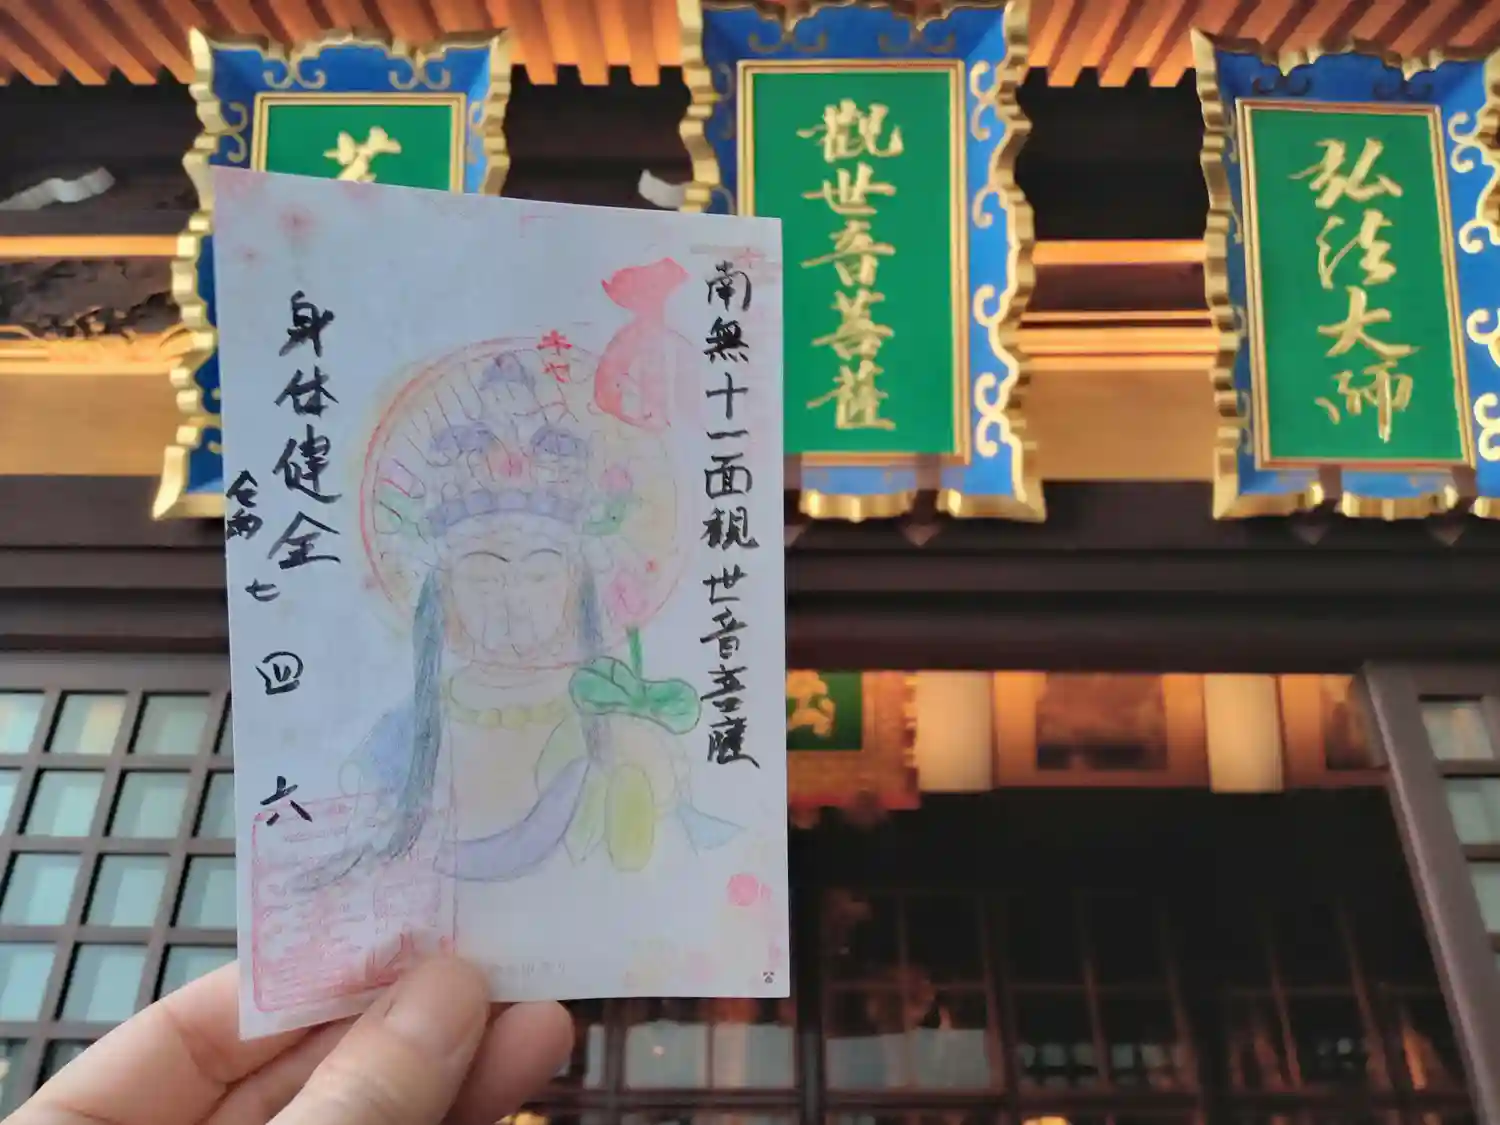 弘法大師
觀世音菩薩
南無十一面観世音菩薩
身体健全
令和
七
四
六